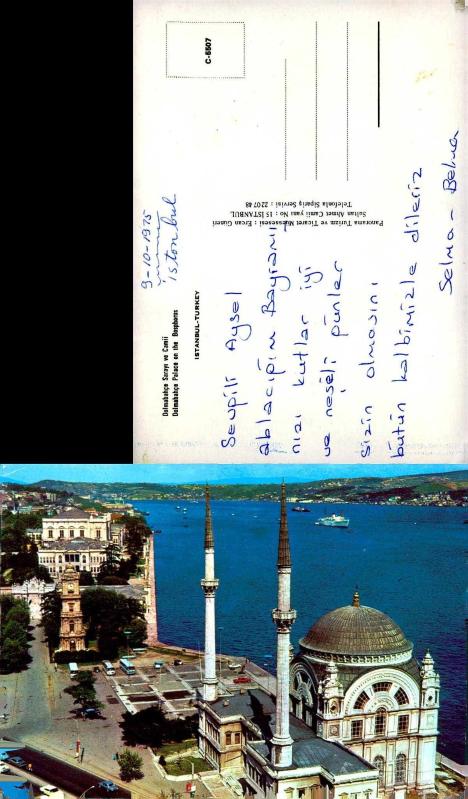 C-5507
Dolmabahçe Sarayı ve Camii
Dolmabahçe Palace on the Bosphorus
ISTANBUL-TURKEY
9-10-1975
istonbul
Sevgili Aysel
ablacığım Bayramı
nızı kutlar iyi
ve neşeli günler
sizin olmasını
bütün kalbimizle dileriz
Selma - Belma
Panorama Turizm ve Ticaret Müessesesi : Ercan Güneri
Sultan Ahmet Camii yanı No : 15 ISTANBUL
Telefonla Sipariş Servisi : 2207 48